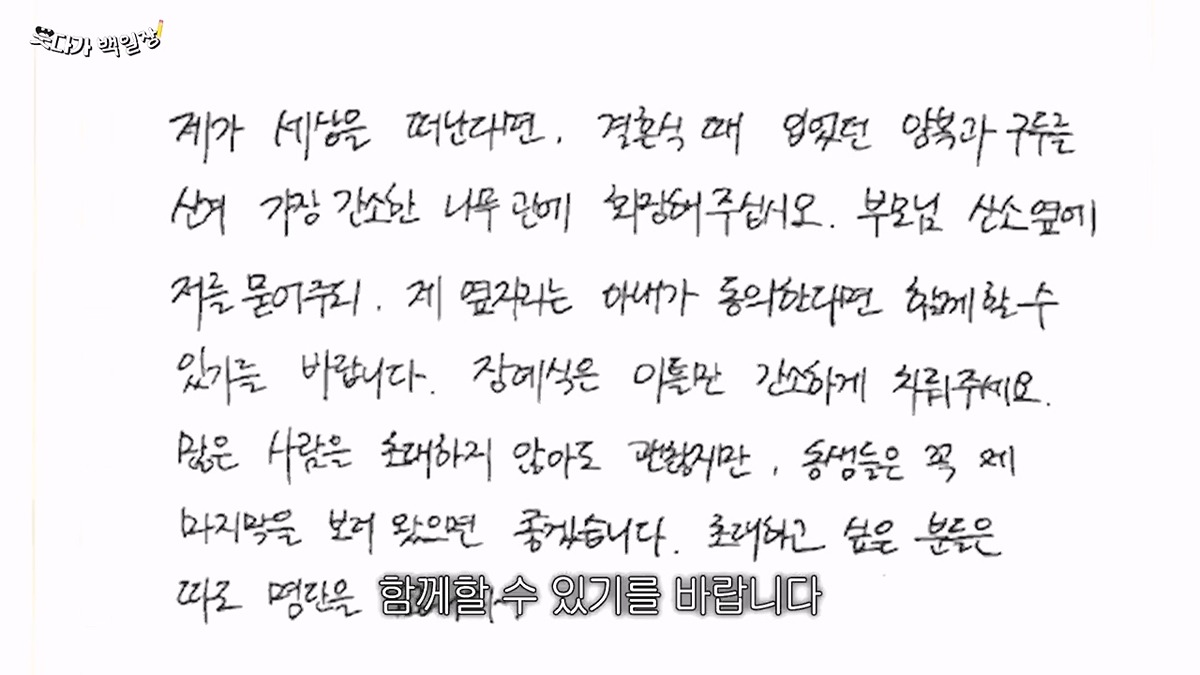 웃다가 백일장
제가 세상을 떠난다면, 결혼식 때 입었던 양복과 구두를
신겨 가장 간소한 나무 관에 화장해주십시오. 부모님 산소 옆에
저를 묻어주되, 제 옆자리는 아내가 동의한다면 함께 할 수
있기를 바랍니다. 장예식은 이틀만 간소하게 치뤄주세요.
많은 사람을 초대하지 않아도 괜찮지만, 동생들은 꼭 제
마지막을 보러 왔으면 좋겠습니다. 초대하고 싶은 분들은
따로 명단을
함께할 수 있기를 바랍니다